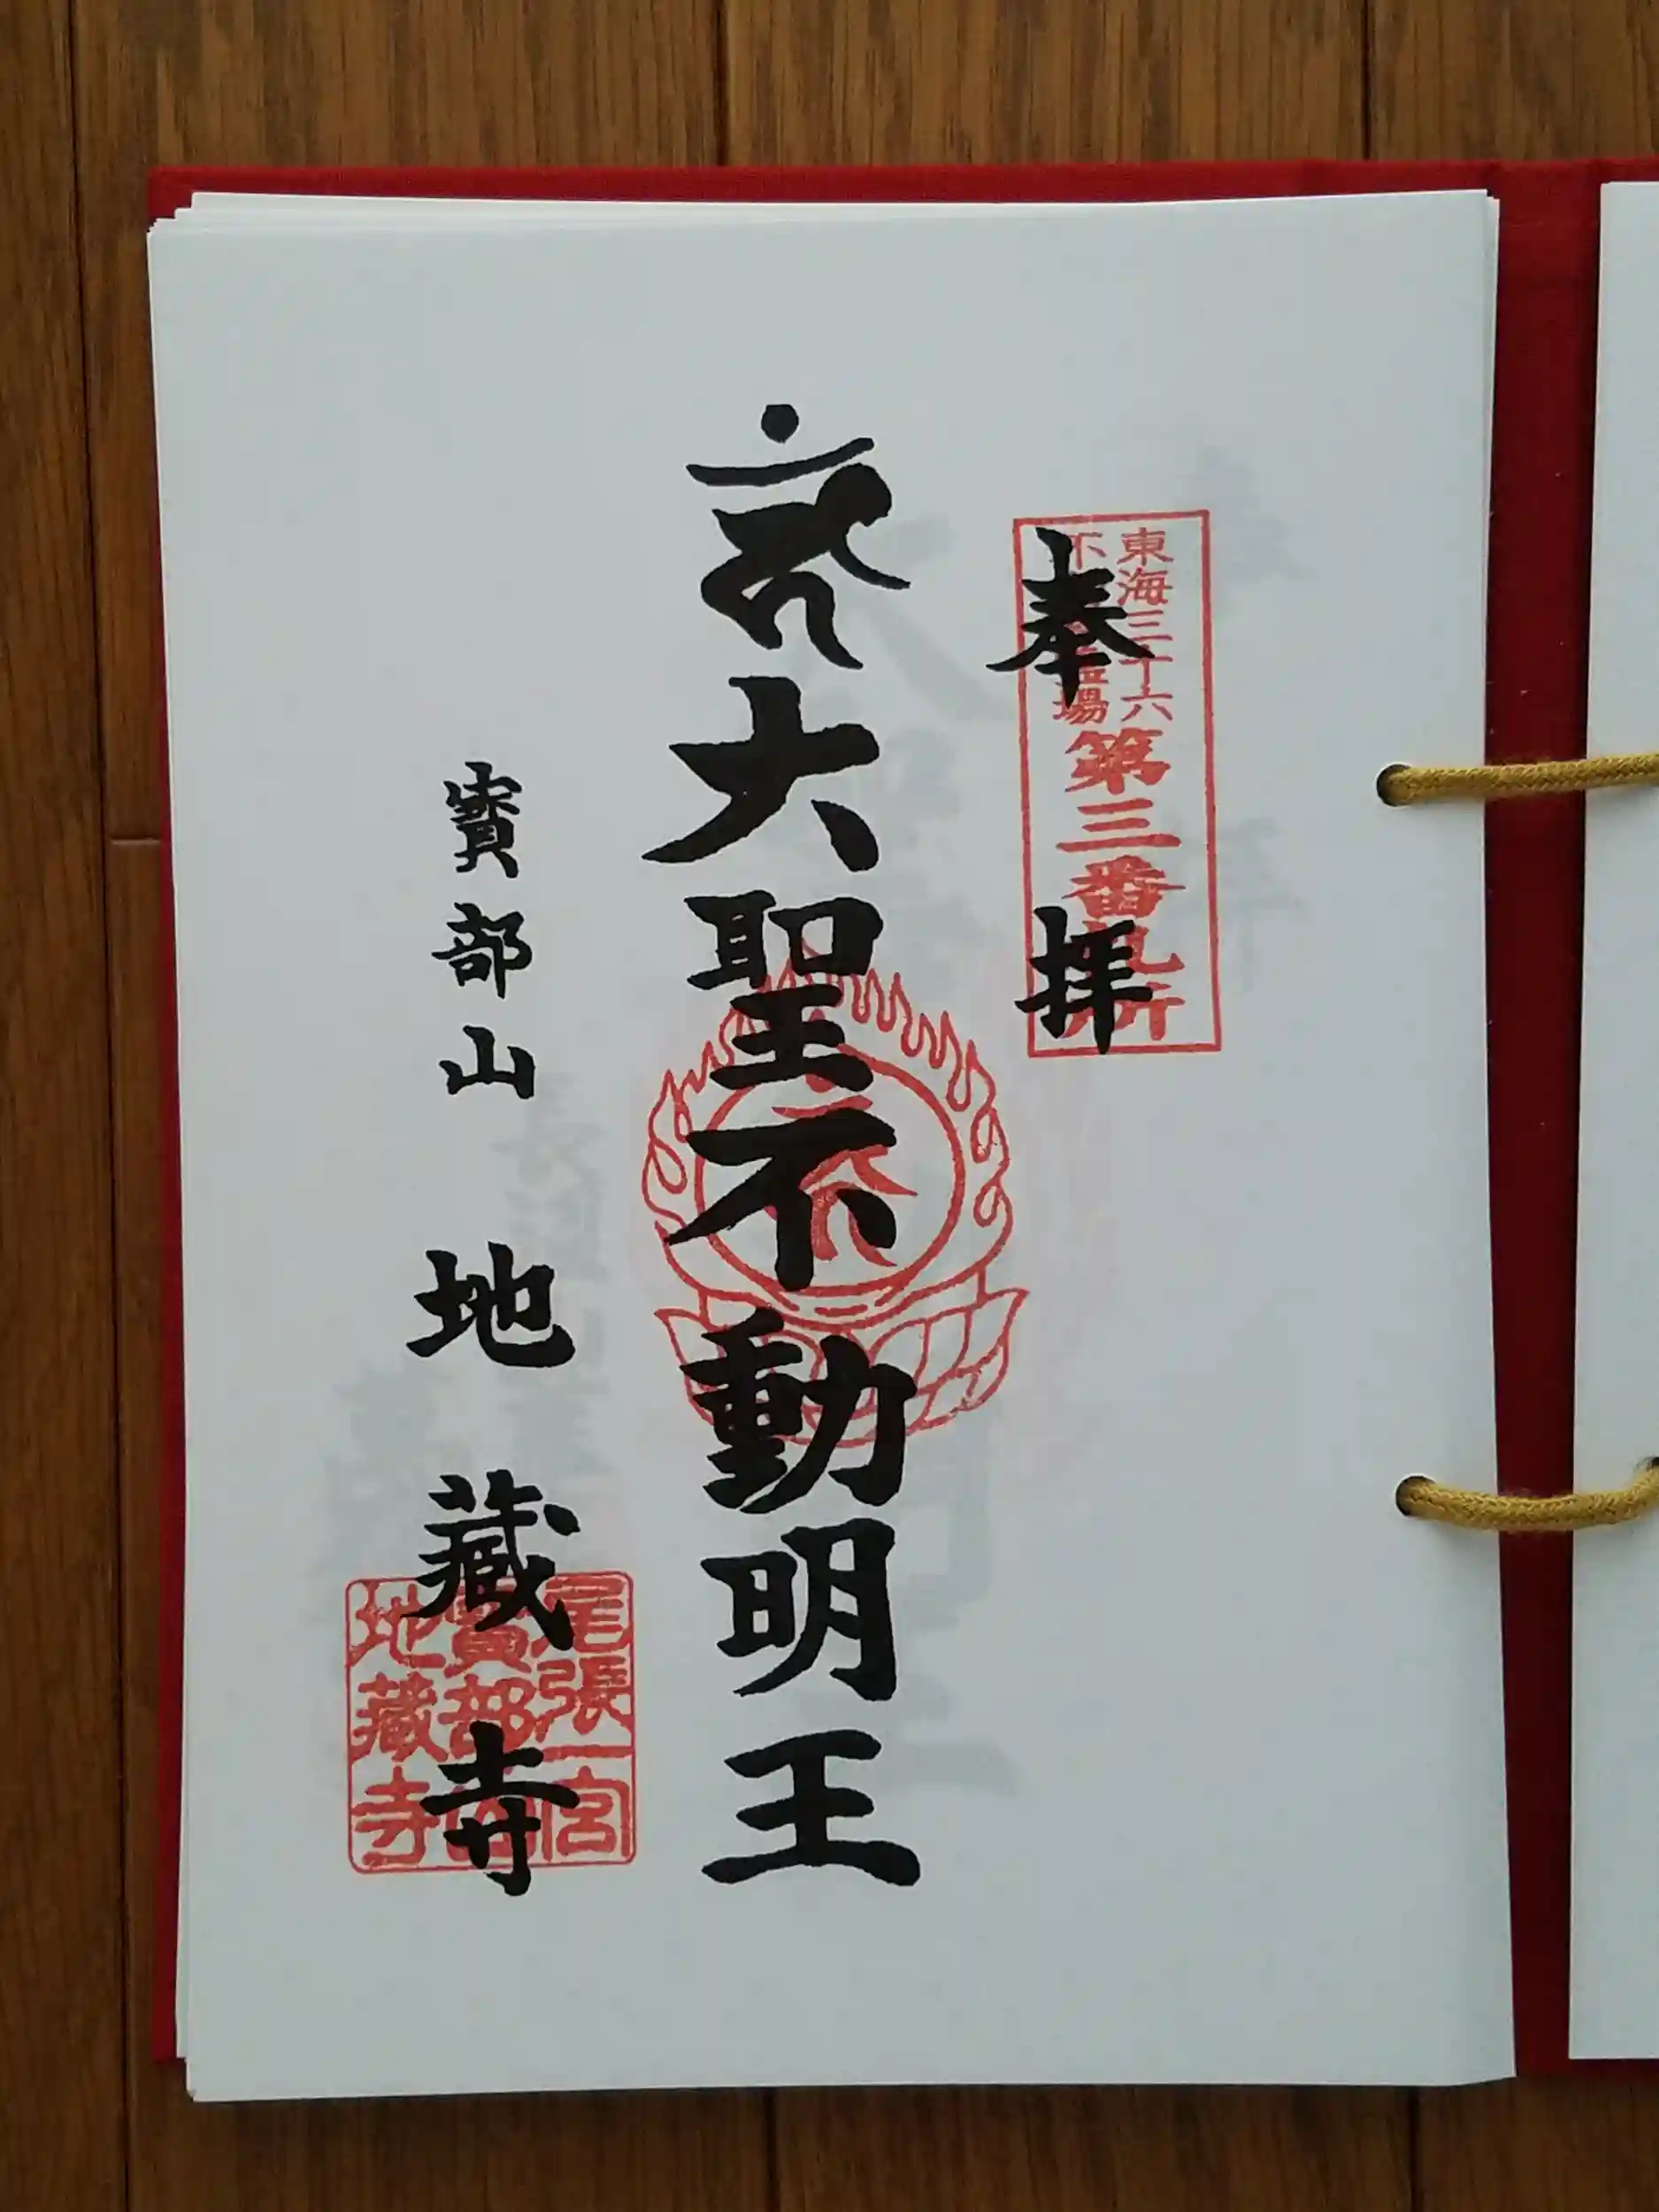 奉拝
東海三十六
不動霊場
第三番札所
大聖不動明王
寳部山 地蔵寺
尾張一宮
寳部山
地蔵寺